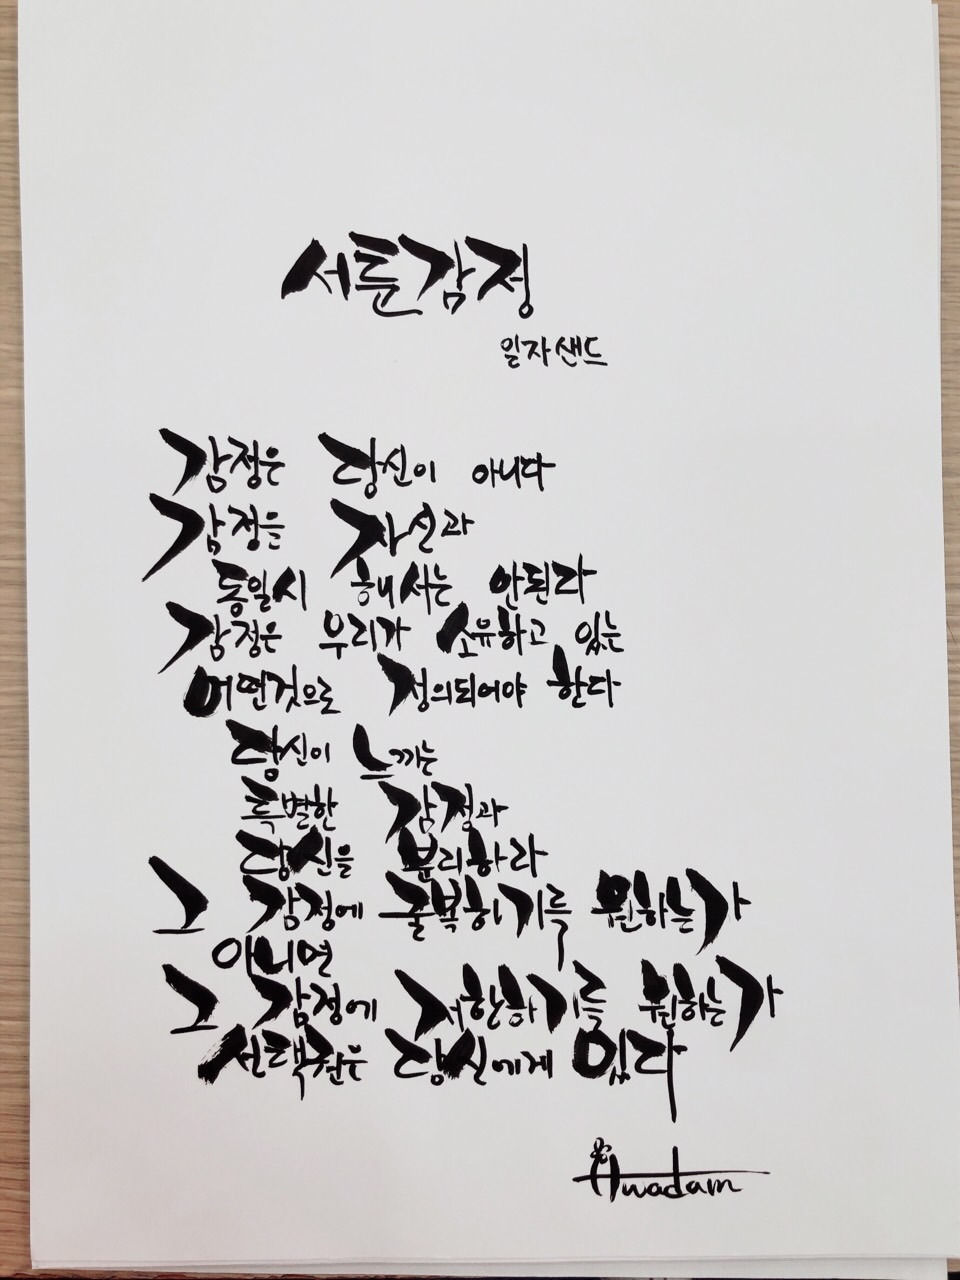 서툰감정
일자샌드
감정은 당신이 아니다
감정을 자신과
동일시 해서는 안된다
감정은 우리가 소유하고 있는
어떤것으로 정의되어야 한다
당신이 느끼는
특별한 감정과
당신을 분리하라
그 감정에 굴복하기를 원하는가
아니면
그 감정에 저항하기를 원하는가
선택권은 당신에게 있다
Hwadam